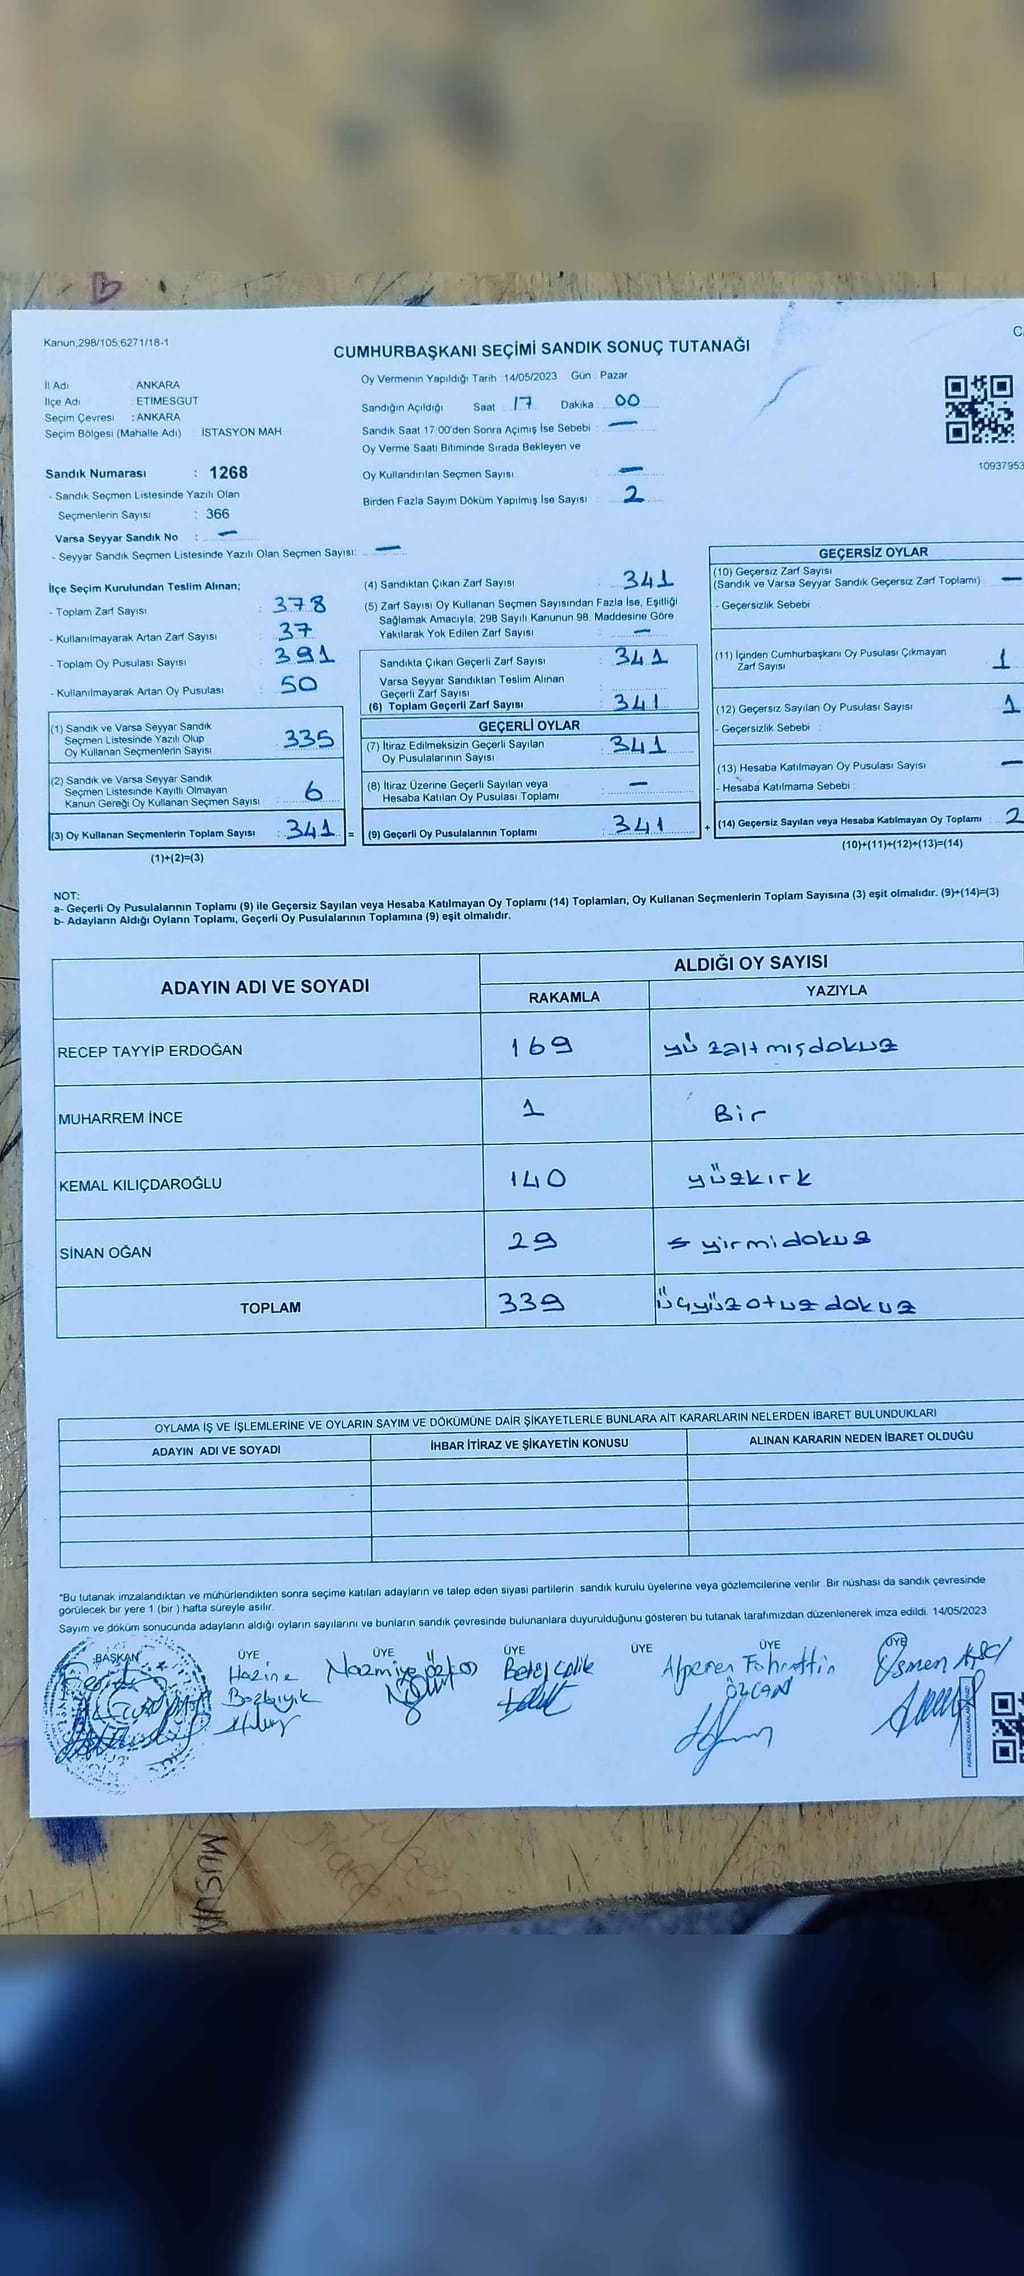 Kanun;298/105,6271/18-1
CUMHURBAŞKANI SEÇİMİ SANDIK SONUÇ TUTANAĞI
İl Adı : ANKARA
İlçe Adı : ETİMESGUT
Seçim Çevresi : ANKARA
Seçim Bölgesi (Mahalle Adı) İSTASYON MAH
Sandık Numarası : 1268
- Sandık Seçmen Listesinde Yazılı Olan
Seçmenlerin Sayısı : 366
Varsa Seyyar Sandık No : —
- Seyyar Sandık Seçmen Listesinde Yazılı Olan Seçmen Sayısı: —
Oy Vermenin Yapıldığı Tarih : 14/05/2023 Gün : Pazar
Sandığın Açıldığı Saat 17 Dakika : 00
Sandık Saat 17:00'den Sonra Açımış İse Sebebi : —
Oy Verme Saati Bitiminde Sırada Bekleyen ve
Oy Kullandırılan Seçmen Sayısı : —
Birden Fazla Sayım Döküm Yapılmış İse Sayısı : 2
10937953
İlçe Seçim Kurulundan Teslim Alınan;
- Toplam Zarf Sayısı : 378
- Kullanılmayarak Artan Zarf Sayısı : 37
- Toplam Oy Pusulası Sayısı : 391
- Kullanılmayarak Artan Oy Pusulası : 50
(1) Sandık ve Varsa Seyyar Sandık
Seçmen Listesinde Yazılı Olup
Oy Kullanan Seçmenlerin Sayısı : 335
(2) Sandık ve Varsa Seyyar Sandık
Seçmen Listesinde Kayıtlı Olmayan
Kanun Gereği Oy Kullanan Seçmen Sayısı : 6
(3) Oy Kullanan Seçmenlerin Toplam Sayısı : 341 =
(1)+(2)=(3)
(4) Sandıktan Çıkan Zarf Sayısı : 341
(5) Zarf Sayısı Oy Kullanan Seçmen Sayısından Fazla İse, Eşitliği
Sağlamak Amacıyla; 298 Sayılı Kanunun 98. Maddesine Göre
Yakılarak Yok Edilen Zarf Sayısı : —
Sandıkta Çıkan Geçerli Zarf Sayısı : 341
Varsa Seyyar Sandıktan Teslim Alınan
Geçerli Zarf Sayısı :
(6) Toplam Geçerli Zarf Sayısı : 341
GEÇERLİ OYLAR
(7) İtiraz Edilmeksizin Geçerli Sayılan
Oy Pusulalarının Sayısı : 341
(8) İtiraz Üzerine Geçerli Sayılan veya
Hesaba Katılan Oy Pusulası Toplamı : —
(9) Geçerli Oy Pusulalarının Toplamı : 341 +
GEÇERSİZ OYLAR
(10) Geçersiz Zarf Sayısı
(Sandık ve Varsa Seyyar Sandık Geçersiz Zarf Toplamı) : —
- Geçersizlik Sebebi :
(11) İçinden Cumhurbaşkanı Oy Pusulası Çıkmayan
Zarf Sayısı : 1
(12) Geçersiz Sayılan Oy Pusulası Sayısı : 1
- Geçersizlik Sebebi :
(13) Hesaba Katılmayan Oy Pusulası Sayısı : —
- Hesaba Katılmama Sebebi :
(14) Geçersiz Sayılan veya Hesaba Katılmayan Oy Toplamı : 2
(10)+(11)+(12)+(13)=(14)
NOT:
a- Geçerli Oy Pusulalarının Toplamı (9) ile Geçersiz Sayılan veya Hesaba Katılmayan Oy Toplamı (14) Toplamları, Oy Kullanan Seçmenlerin Toplam Sayısına (3) eşit olmalıdır. (9)+(14)=(3)
b- Adayların Aldığı Oyların Toplamı, Geçerli Oy Pusulalarının Toplamına (9) eşit olmalıdır.
ADAYIN ADI VE SOYADI ALDIĞI OY SAYISI
RAKAMLA YAZIYLA
RECEP TAYYİP ERDOĞAN 169 yüzaltmışdokuz
MUHARREM İNCE 1 Bir
KEMAL KILIÇDAROĞLU 140 yüzkırk
SİNAN OĞAN 29 yirmidokuz
TOPLAM 339 üçyüzotuzdokuz
OYLAMA İŞ VE İŞLEMLERİNE VE OYLARIN SAYIM VE DÖKÜMÜNE DAİR ŞİKAYETLERLE BUNLARA AİT KARARLARIN NELERDEN İBARET BULUNDUKLARI
ADAYIN ADI VE SOYADI İHBAR İTİRAZ VE ŞİKAYETİN KONUSU ALINAN KARARIN NEDEN İBARET OLDUĞU
*Bu tutanak imzalandıktan ve mühürlendikten sonra seçime katılan adayların ve talep eden siyasi partilerin sandık kurulu üyelerine veya gözlemcilerine verilir. Bir nüshası da sandık çevresinde
görülecek bir yere 1 (bir ) hafta süreyle asılır.
Sayım ve döküm sonucunda adayların aldığı oyların sayılarını ve bunların sandık çevresinde bulunanlara duyurulduğunu gösteren bu tutanak tarafımızdan düzenlenerek imza edildi. 14/05/2023
BAŞKAN ÜYE ÜYE ÜYE ÜYE ÜYE ÜYE
Hazine Nazmiye Özkan Alperen Fahrettin Osman
ÖZCAN
MUSLIM